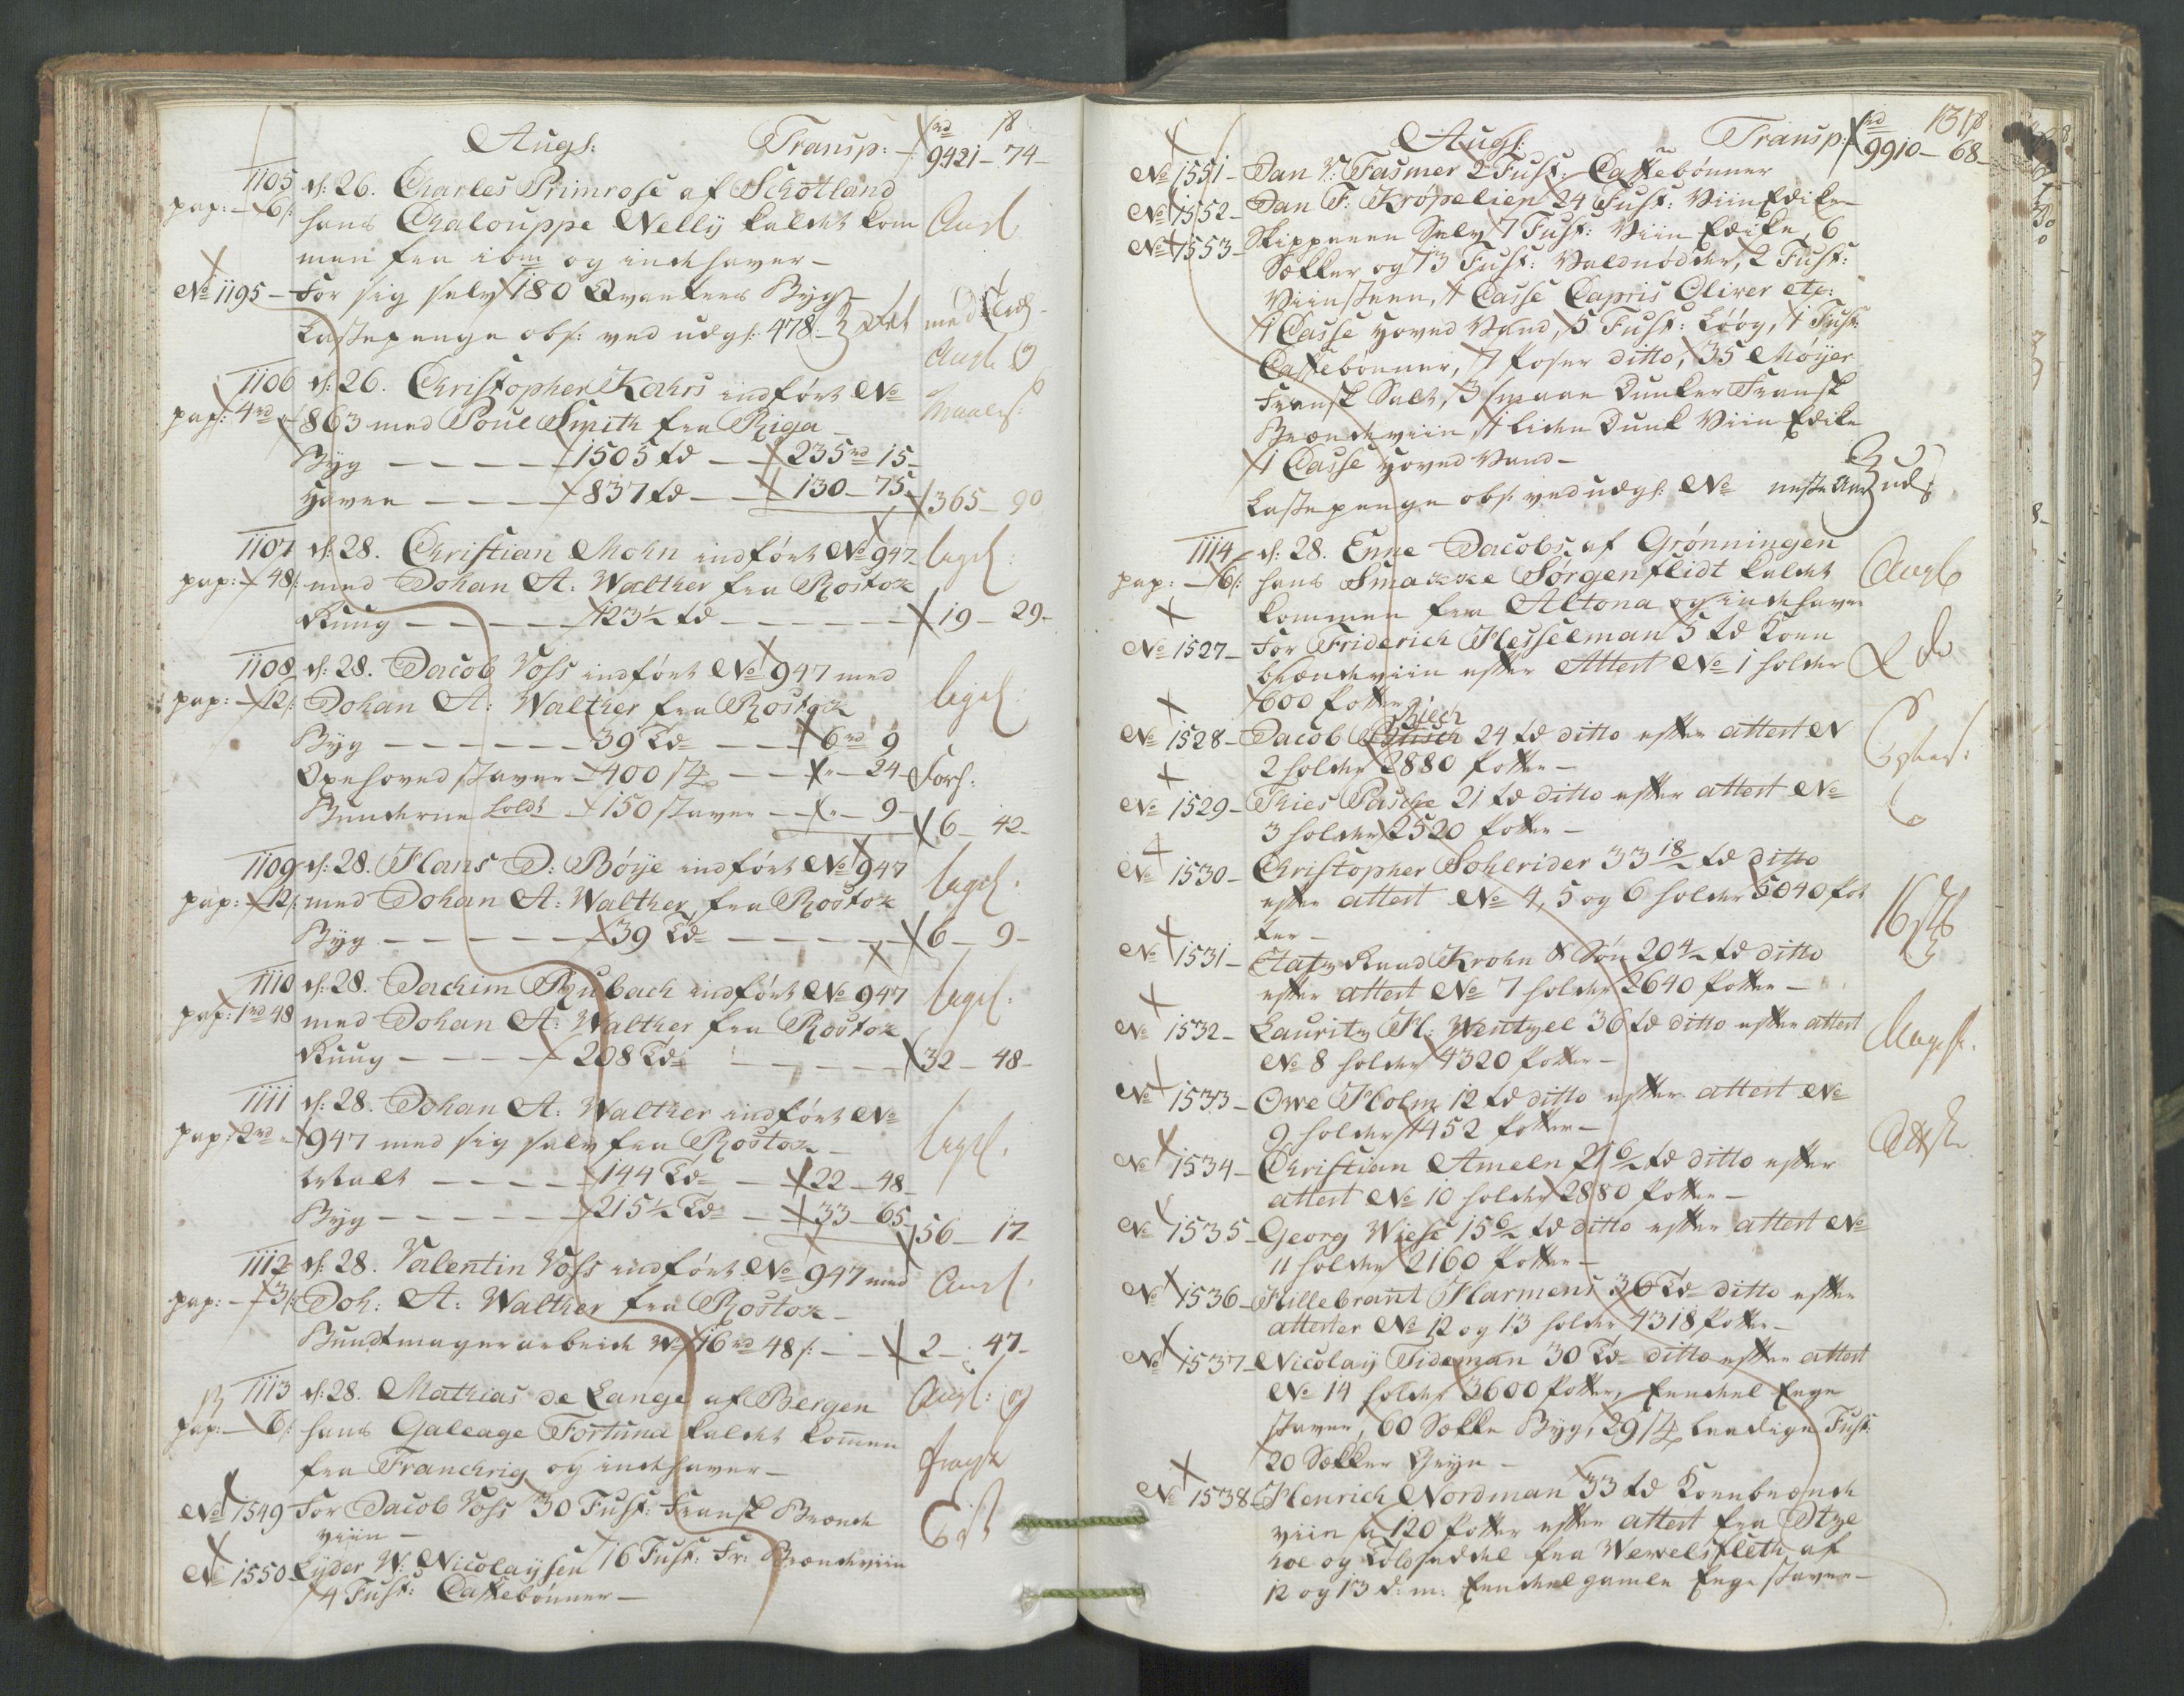 Augs: Transp: rd 9421 - 74 - ß
1105 d: 26. Charles Primrose af Schotland
pap: - 6 ß: hans Chalouppe Nelly kaldet kom
men fra ibm og indehaver -
No 1195 - For sig selv 180 Qvarters Byg
Lastepenge obs: ved udgl: 478 -
1106 d: 26. Christopher Kahrs indført No
pap: 4 rd 863 med Poul Smith fra Riga -
Byg - - - - 1505 td - - 235 rd 15 -
Havre - - - - 837 td - - 130 - 75 - 365 - 90
1107 d: 28. Christian Mohn indført No 947
pap: - 48 ß: med Johan A: Walther fra Rostok
Ruug - - - - 123½ td - - - - 19 - 29 -
1108 d: 28. Jacob Voss indført No 947 med
pap: - 12 ß: Johan A: Walther fra Rostock
Byg - - - - 39 Td - - - 6 rd 9
Oxehoved staver - 400 - - " - 24 -
Bunderne holdt - 150 staver - - " - 9 - 6 - 42 -
1109 d: 28. Hans D: Böije indført No 947
pap: - 12 ß: med Johan A: Walther, fra Rostok
Byg - - - - 39 Td - - - - 6 - 9 -
1110 d: 28. Jochim Rubach indført No 947
pap: 1 rd 48 med Johan A: Walther fra Rostok
Ruug - - - - 208 Td - - - - 32 - 48 -
1111 d: 28. Johan A: Walther indført No
pap: 2 rd 947 med sig selv fra Rostok -
- - - - 144 Td - - 22 - 48 -
Byg - - - - 215½ Td - - 33 - 65 - 56 - 17
1112 d: 28. Valentin Voss indført No 947 med
pap: - 3 ß: Joh: A: Walther fra Rostok -
Bundtmagerarbeide W 16 rd 48 ß: - - 2 - 47 -
1113 d: 28. Mathias de Lange af Bergen
pap: - 6 ß: hans Galeage Fortuna kaldet kommen
fra Franchrig og indehaver -
No 1549 For Jacob Voss 30 Fust: Fransk Brænde
viin -
No 1550 Lyder W: Nicolaysen 16 Fust: Fr: Brændeviin
4 Fust: Caffebønner -
Augs: Transp: rd 9910 - 68 -
No 1551 - Dan V: Fasmer 2 Fust: Caffebønner
No 1552 - Dan F: Kröpelien 24 Fust: Viin Edike -
No 1553 - Skipperen Selv 7 Fust: Viin Edike, 6
Sækker og 13 Fust: Valdnødder, 2 Fust:
Viinsteen, 1 Casse Capris Oliver etc:
1 Casse Hoved Vand, 5 Fust: Løøg, 1 Fust:
Caffebønner, 7 Poser ditto, 35 Møyer
Fransk Salt, 3 smaae Dunker Fransk
Brændeviin, 1 liden Dunk Viin Edike
1 Casse Hoved Vand -
Lastepenge obs: ved udgl: No neste Aar
1114 d: 28. Enne Jacobs af Grønningen
pap: - 6 ß: hans Smakke Sorgenflidt kaldet
kommen fra Altona og indehaver
No 1527 - For Friderich Hesselman 5 td Korn
brændeviin efter Attest No 1 holder
600 Potter
No 1528 - Jacob Riech 24 td ditto efter attest N
2 holder 2880 Potter -
No 1529 - Thies Pasche 21 td ditto efter attest No
3 holder 2520 Potter -
No 1530 - Christopher Sohlrider 33 td ditto
efter attest No 4, 5 og 6 holder 5040 Pot
ter -
No 1531 - Raad Krohn & Søn 20 td ditto
efter attest No 7 holder 2640 Potter -
No 1532 - Lauritz H: Wentzel 36 td ditto efter attest
No 8 holder 4320 Potter -
No 1533 - Owe Holm 12 td ditto efter attest No
9 holder 1452 Potter -
No 1534 - Christian Ameln 21 td ditto efter
attest No 10 holder 2880 Potter -
No 1535 - Georg Wiese 15 td ditto efter attest No
11 holder 2160 Potter -
No 1536 - Hillebrant Harmens 36 Td ditto efter
attester No 12 og 13 holder 4318 Potter -
No 1537 - Nicolay Tideman 30 Td ditto efter attest
No 14 holder 3600 Potter,
staver, 60 Sække Byg, 29 Fust:
20 Sækker Gryn -
No 1538 - Henrich Nordman 33 td Kornbrænde
viin a 120 Potter efter attest fra Itze
hoe og Toldseddel fra Wewelsfleth af
12 og 13 d: m: gamle staver -